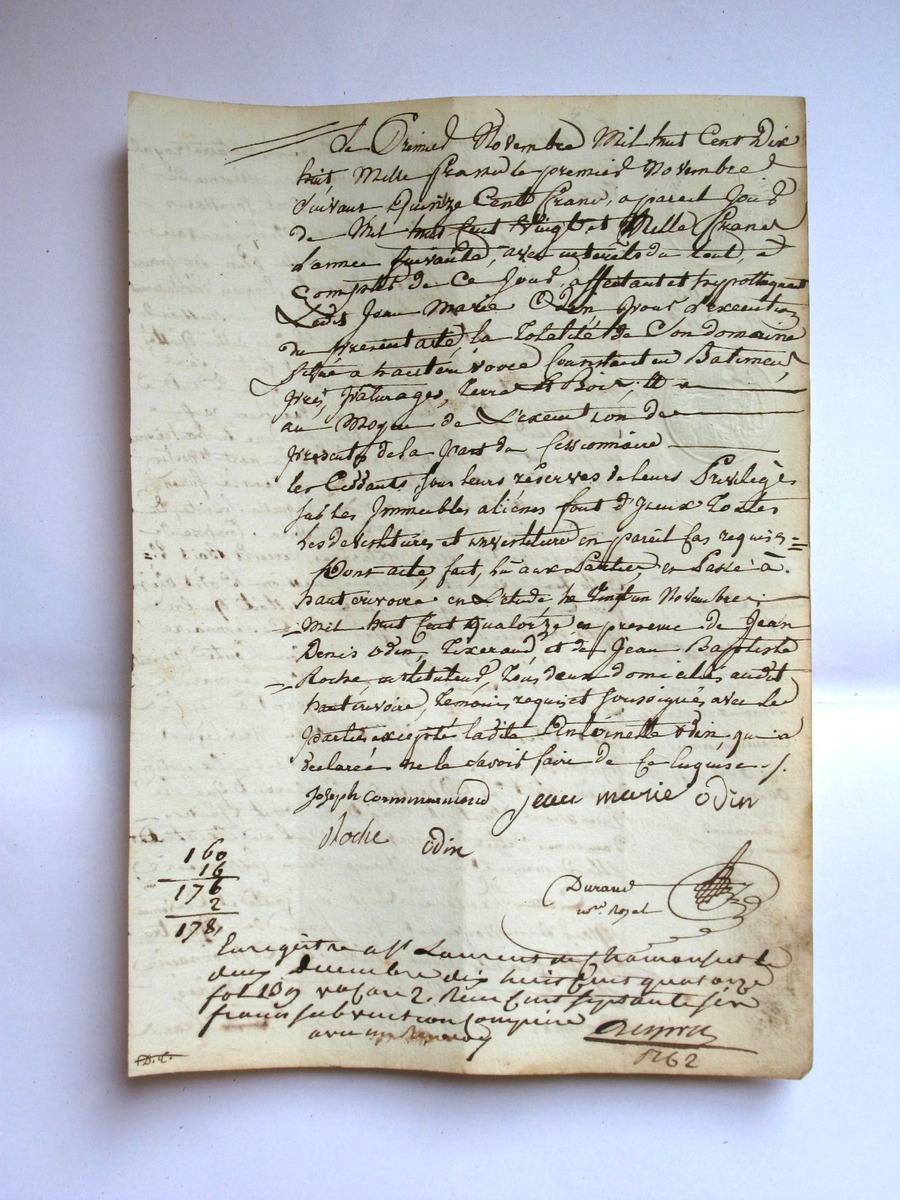 Le Premier Novembre Mil huit Cent Dix
huit, Mille francs le premier Novembre
Suivant Quinze Cents francs, a pareil Jour
de Mil huit Cent Vingt et Mille francs
L'année suivante, avec intérêts du tout, à
Compter de Ce Jour, affectant et hypottequant
Ledit Jean Marie Odin pour L'execution
du present acte, la Totalité de Son domaine
situé a hauterivoire Consistant en Batiment,
prés, Paturages, terres et Bois,
au Moyen de L'execution de
presentes de la part du Cessionnaire
les Cédants sous leurs réserves de leurs Privilège
sur les Immeubles aliénés font d'yceux Toutes
les devestitures et investiture en pareil Cas requises
Dont acte, fait, lu aux Parties, et Passé à
hauterivoire en L'etude le Vingt un Novembre
Mil huit Cent quatorze en presence de Jean
Denis Odin, Tixerand et de Jean Baptiste
Roche, instituteur, Tous deux domiciliés audit
hauterivoire, Temoins requis et soussignés avec les
parties excepté ladite Antoinette Odin qui a
déclarée ne le savoir faire de Ce enquise ./.
Joseph Jean marie odin
Roche odin
160
16
176
2
178,
Durand
Nre Royal
Enregistré a St Laurent de Chamousset le
deux decembre dix huit Cent quatorze
fol 189 Case 2. Reçu Cent septante six
francs subvention comprise
1762